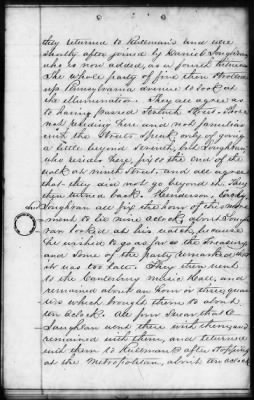 they returned to Rullman's and were
shortly after joined by Daniel Loughran
who is now added, as a fourth witness
The whole party of five then strolled
up Pennsylvania avenue to look at
the illumination. They all agree as
to having passed Seventh Street. Those
not residing here and not familiar
with the Streets speak only of going
a little beyond Seventh, but Loughran,
who resides here, fixes the end of the
walk at ninth Street, and all agree
that they did not go beyond it. They
then turned back. Henderson,
and Loughran all fix the hour of this
ment to be nine oclock, about Lough
ran looked at his watch, because
he wished to go as far as the Treasury
and some of the party remarked that
it was too late. They then went
to the Canterbury Music Hall, and
remained about an hour or three quar
ters which brought them to about
ten oclock. All four swear that O
Laughlan went there with them, and
remained with them, and returned
with them to Rullmans after stopping
at the Metropolitan, about ten oclock